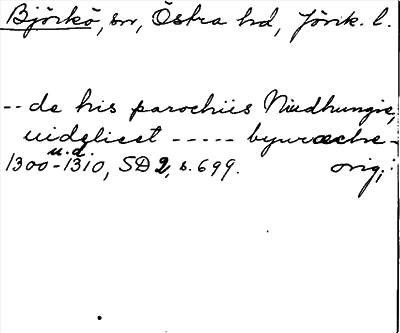 Björkö, sn, Östra hd, Jönk. l.
-- de his parochiis Niudhungie,
uidzlicet ----- byurœchre -
u.d.
1300-1310, SD 2, s. 699. orig.;